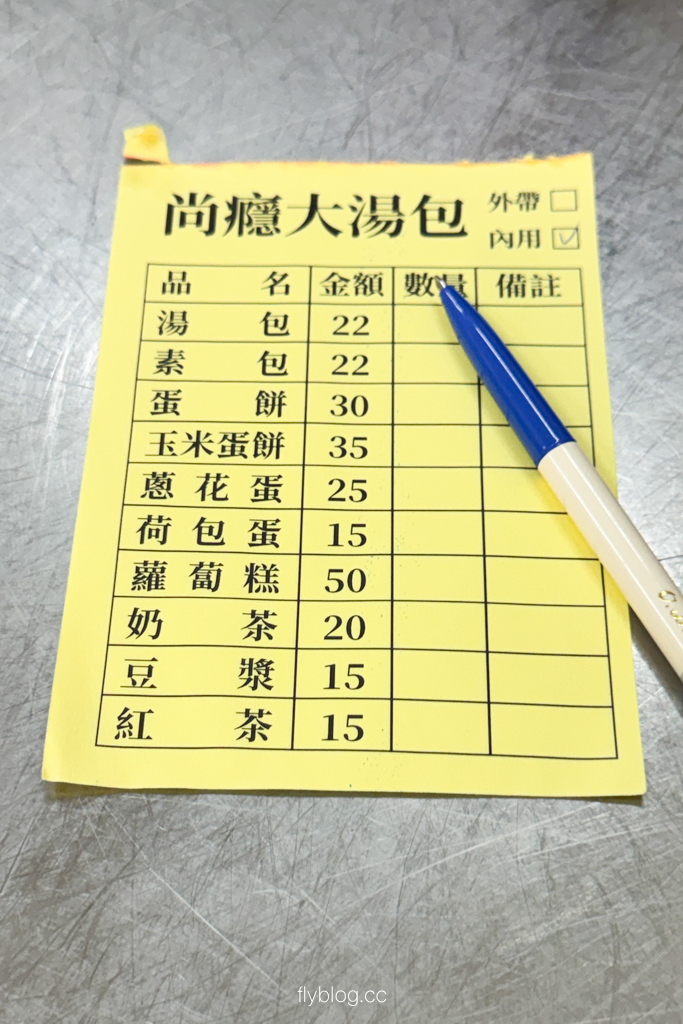 尚癮大湯包
外帶
內用
品名 金額 數量 備註
湯包 22
素包 22
蛋餅 30
玉米蛋餅 35
蔥花蛋 25
荷包蛋 15
蘿蔔糕 50
奶茶 20
豆漿 15
紅茶 15
flyblog.cc